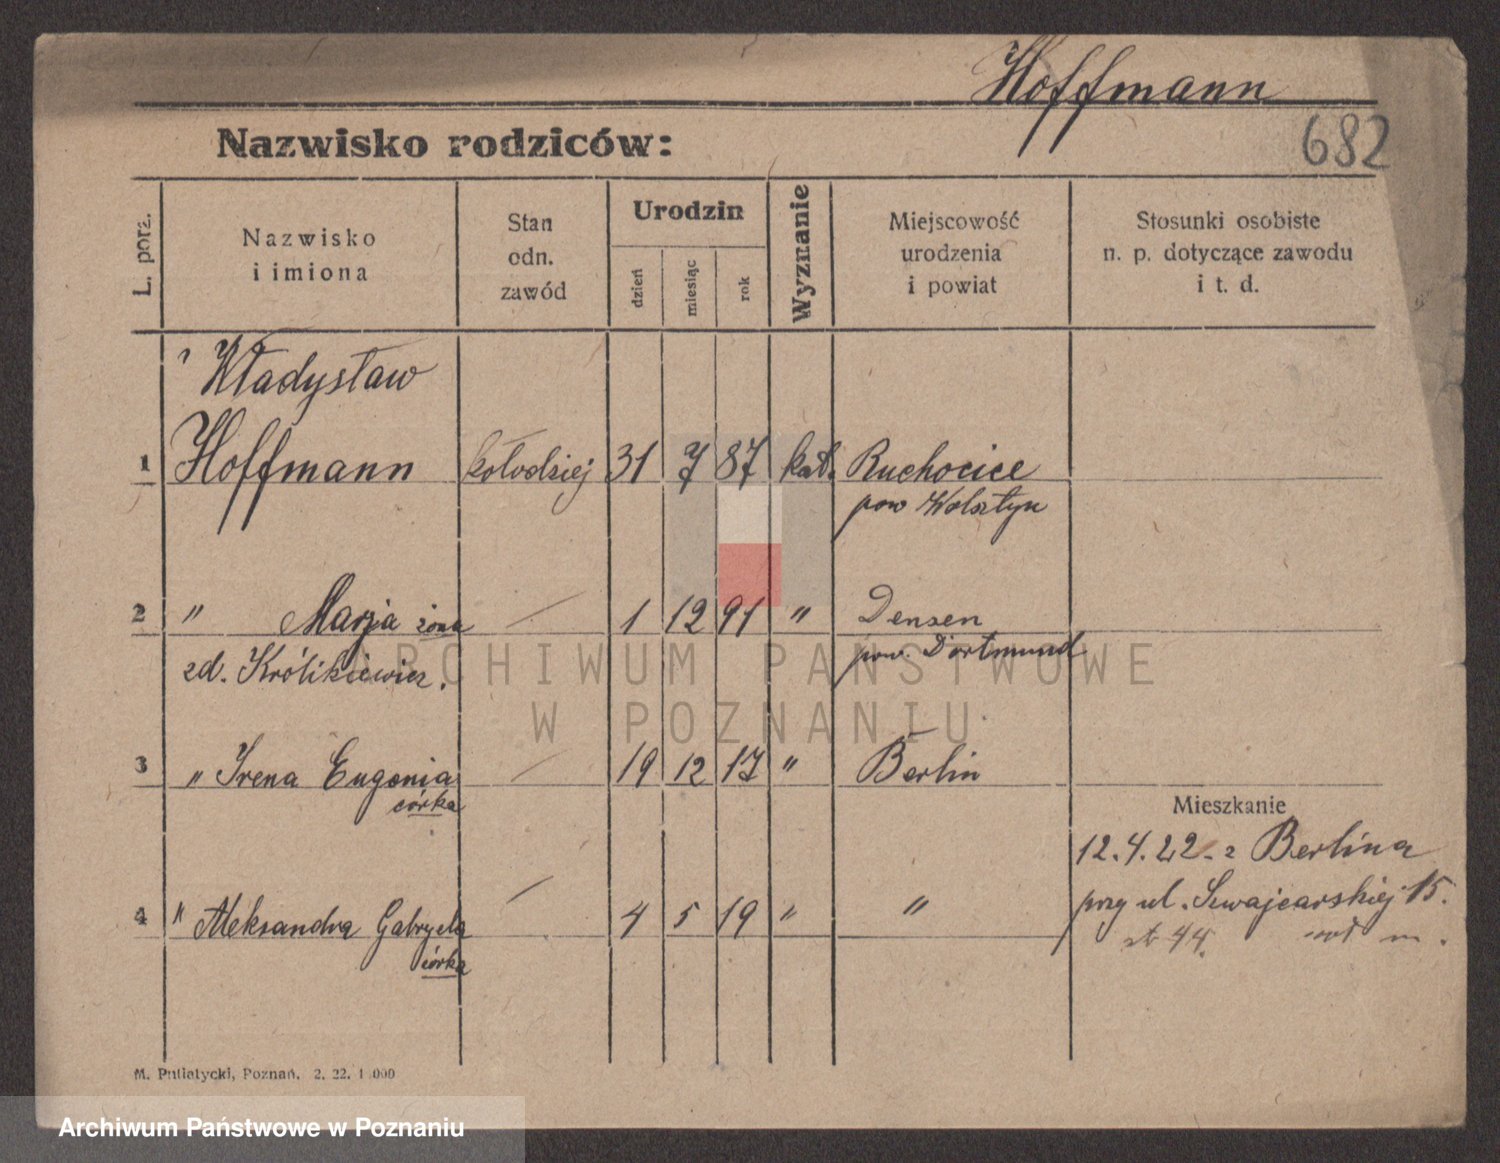 Hoffmann
Nazwisko rodziców:
682
L. porz.
Nazwisko
i imiona
Stan
odn.
zawód
Urodzin
dzień
miesiąc
rok
Wyznanie
Miejscowość
urodzenia
i powiat
Stosunki osobiste
n. p. dotyczące zawodu
i t. d.
Władysław
1 Hoffmann kołodziej 31 7 87 kat. Ruchocice
pow Wolsztyn
2 " Marja żona — 1 12 91 " Densen
zd. Królikiewicz. pow. Dortmund
3 " Irena Eugenia — 19 12 17 " Berlin
córka
Mieszkanie
12.4.22. z Berlina
4 " Aleksandra Gabryela — 4 5 19 " " przy ul. Szwajcarskiej 15.
córka 44.
M. Putiatycki, Poznań. 2. 22. 1 000
ARCHIWUM PAŃSTWOWE
W POZNANIU
Archiwum Państwowe w Poznaniu